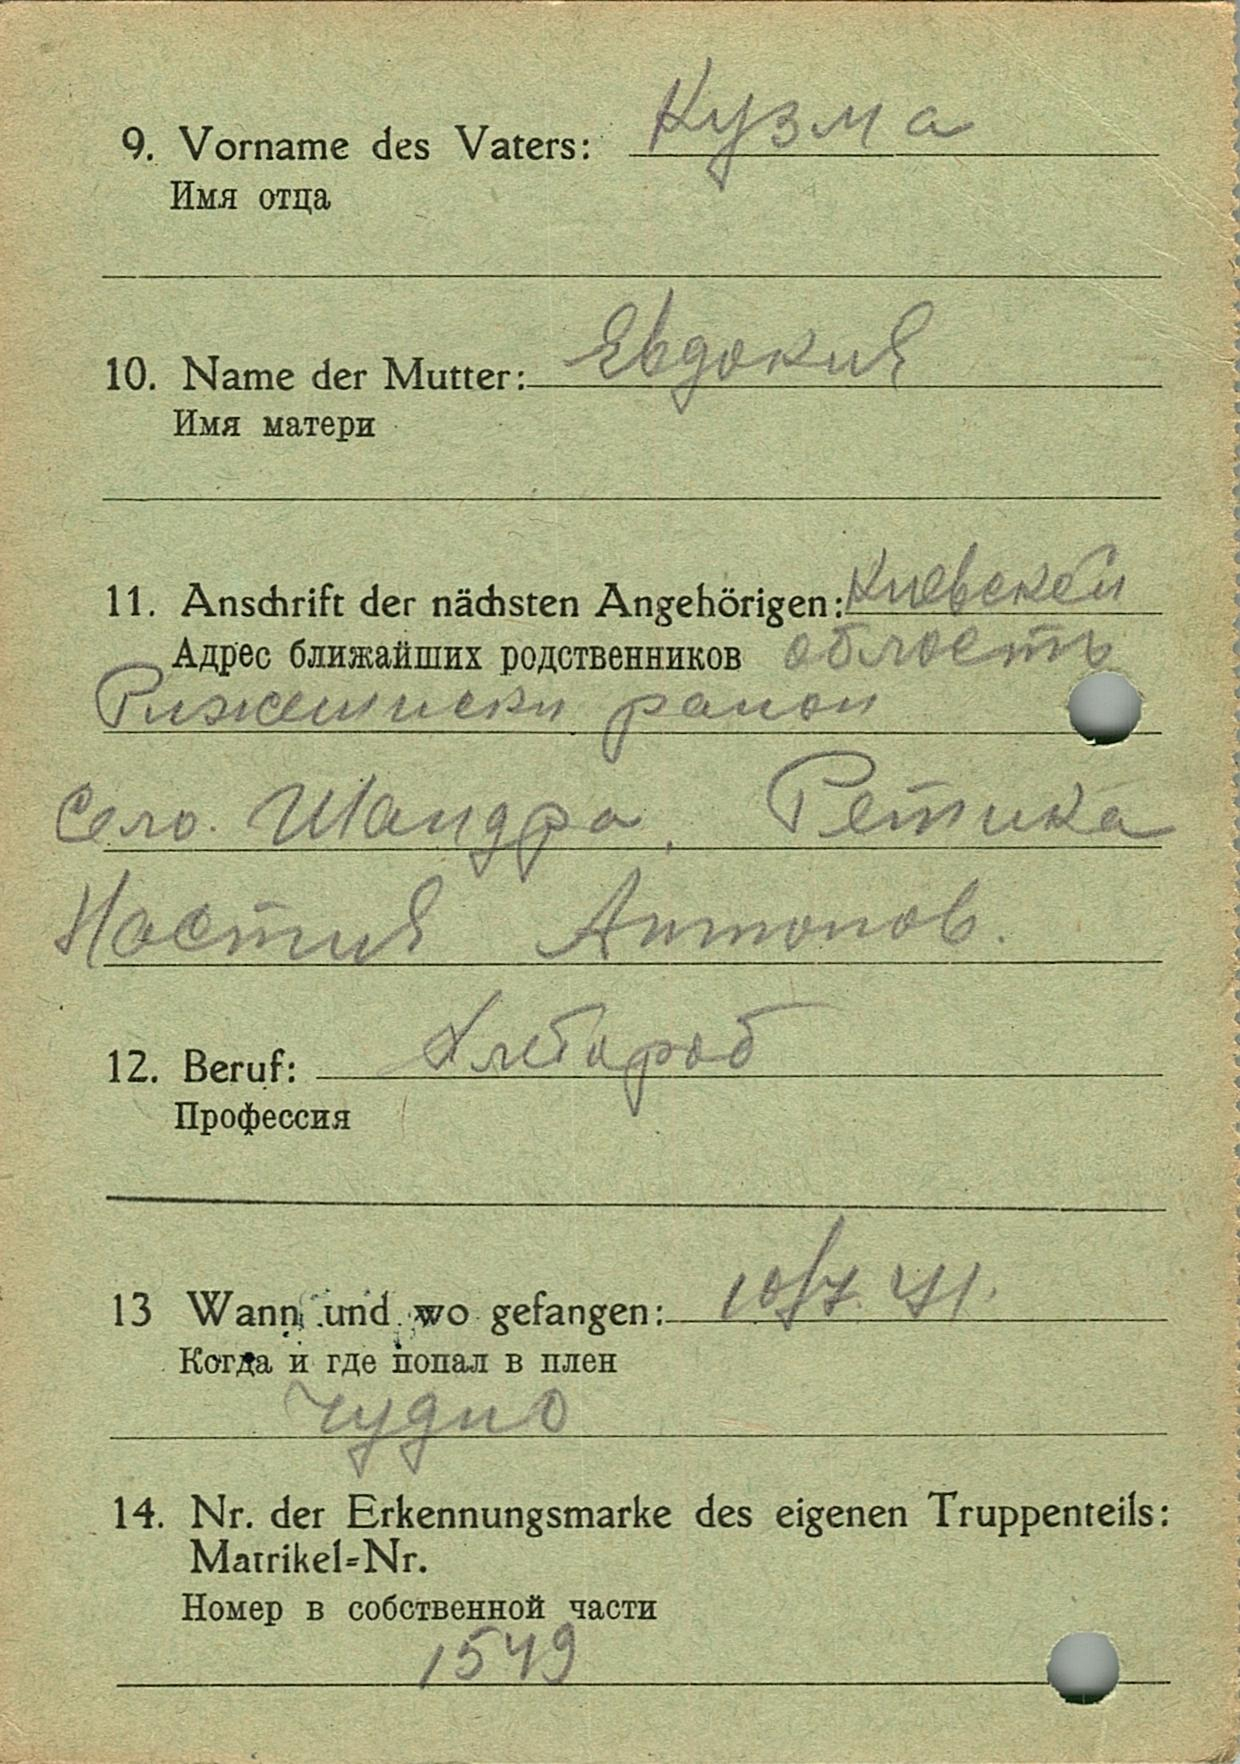 9. Vorname des Vaters: Кузма
Имя отца
10. Name der Mutter: Евдокия
Имя матери
11. Anschrift der nächsten Angehörigen: Киевскей
Адрес ближайших родственников область
Ржешиски рапои
село. Шандра, Ретика
Настия Антонов.
12. Beruf: Хлебороб
Профессия
13 Wann und wo gefangen: 10/7. 41.
Когда и где попал в плен
Чудно
14. Nr. der Erkennungsmarke des eigenen Truppenteils:
Matrikel-Nr.
Номер в собственной части
1549